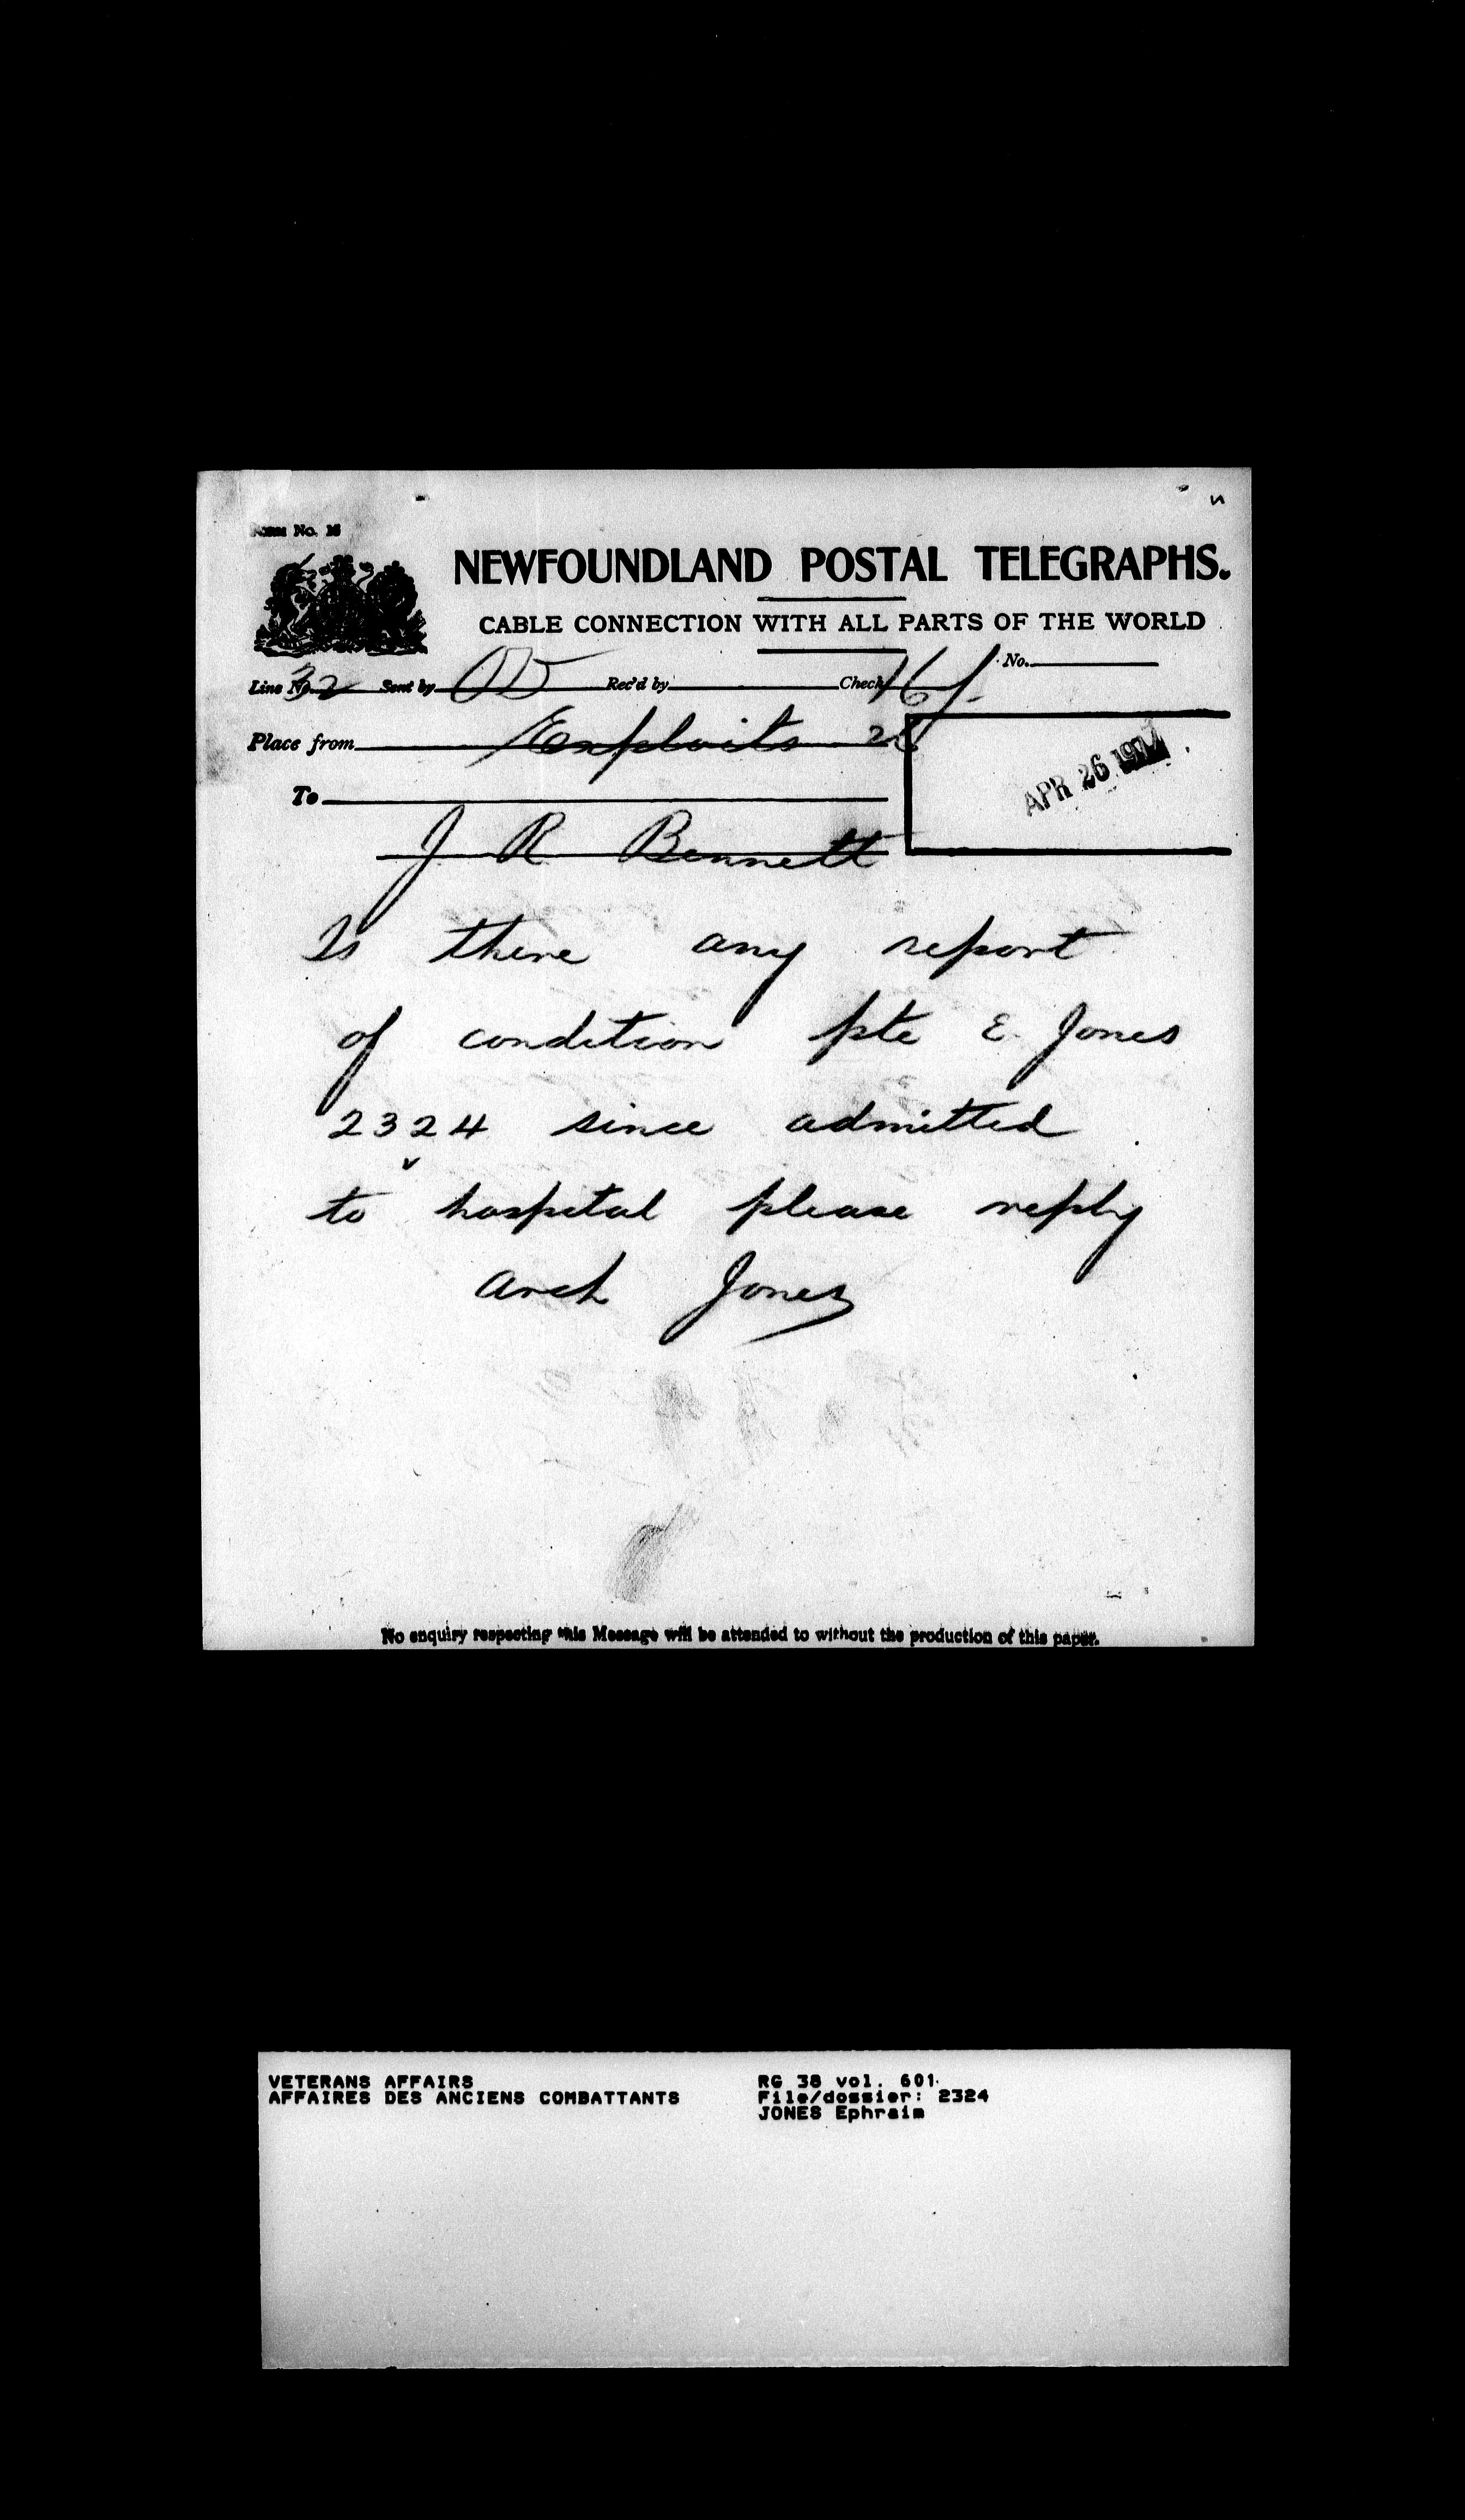 Form No. 16
NEWFOUNDLAND POSTAL TELEGRAPHS.
CABLE CONNECTION WITH ALL PARTS OF THE WORLD
No.
Line No. 32 Sent by Rec'd by Check 16
Place from Exploits 26
APR 26 1917
To
J R Bennett
Is there any report
of condition pte E. Jones
2324 since admitted
to hospital please reply
Arch Jones
No enquiry respecting this Message will be attended to without the production of this paper.
VETERANS AFFAIRS RG 38 vol. 601
AFFAIRES DES ANCIENS COMBATTANTS File/dossier: 2324
JONES Ephraim